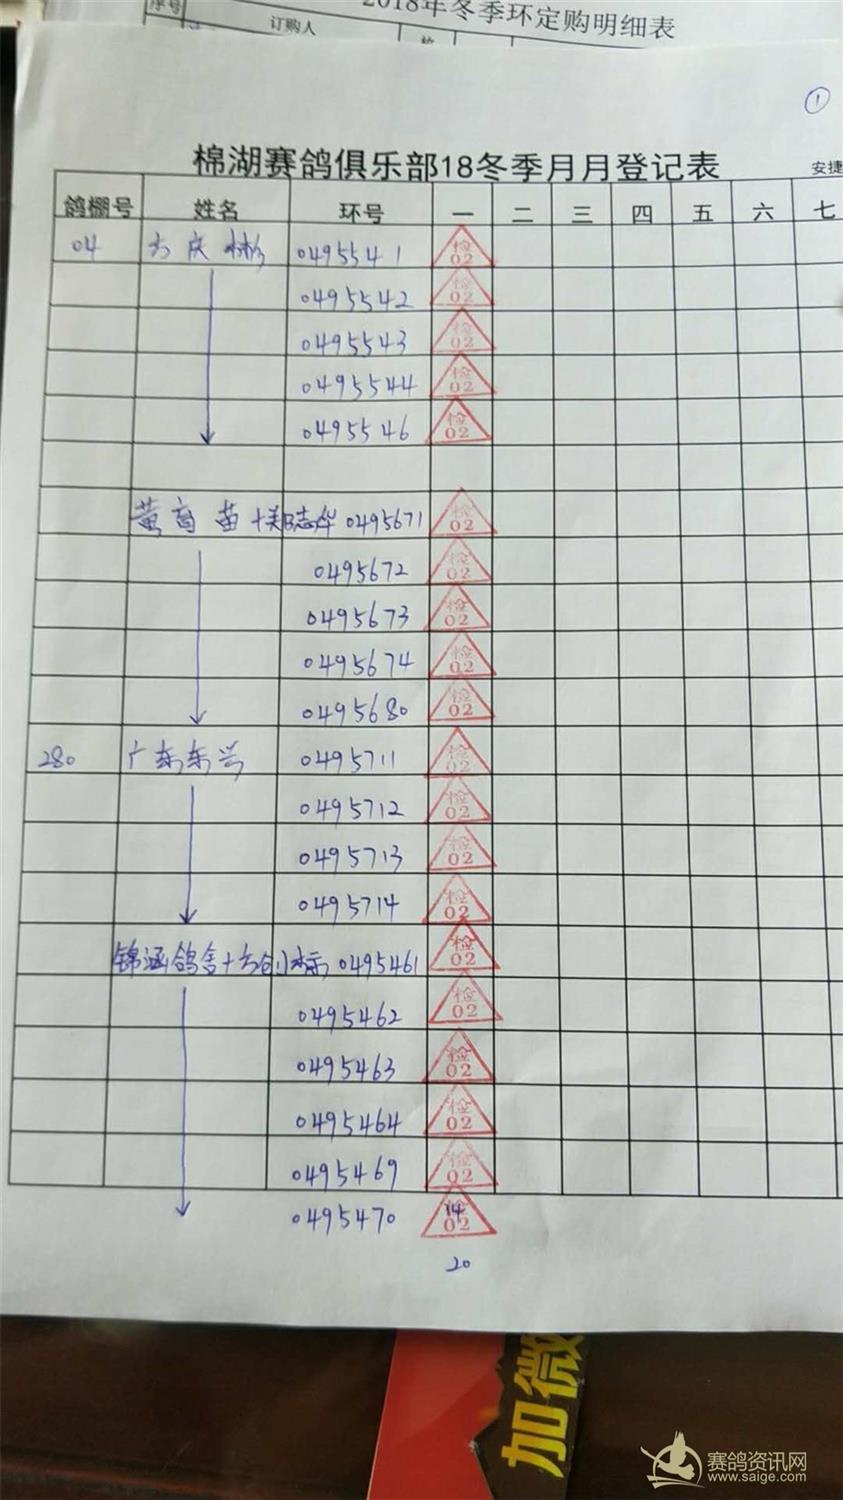 序号 订购人 2018年冬季环定购明细表
①
棉湖赛鸽俱乐部18冬季月月登记表 安捷
鸽棚号 姓名 环号 一 二 三 四 五 六 七
04 方庆彬 0495541 检02
0495542 检02
0495543 检02
0495544 检02
0495546 检02
黄育苗+郑志华 0495671 检02
0495672 检02
0495673 检02
0495674 检02
0495680 检02
280 广东东兴 0495711 检02
0495712 检02
0495713 检02
0495714 检02
锦涵鸽舍+方创标 0495461 检02
0495462 检02
0495463 检02
0495464 检02
0495469 检02
0495470 检02
20
加微
赛鸽资讯网
www.saige.com